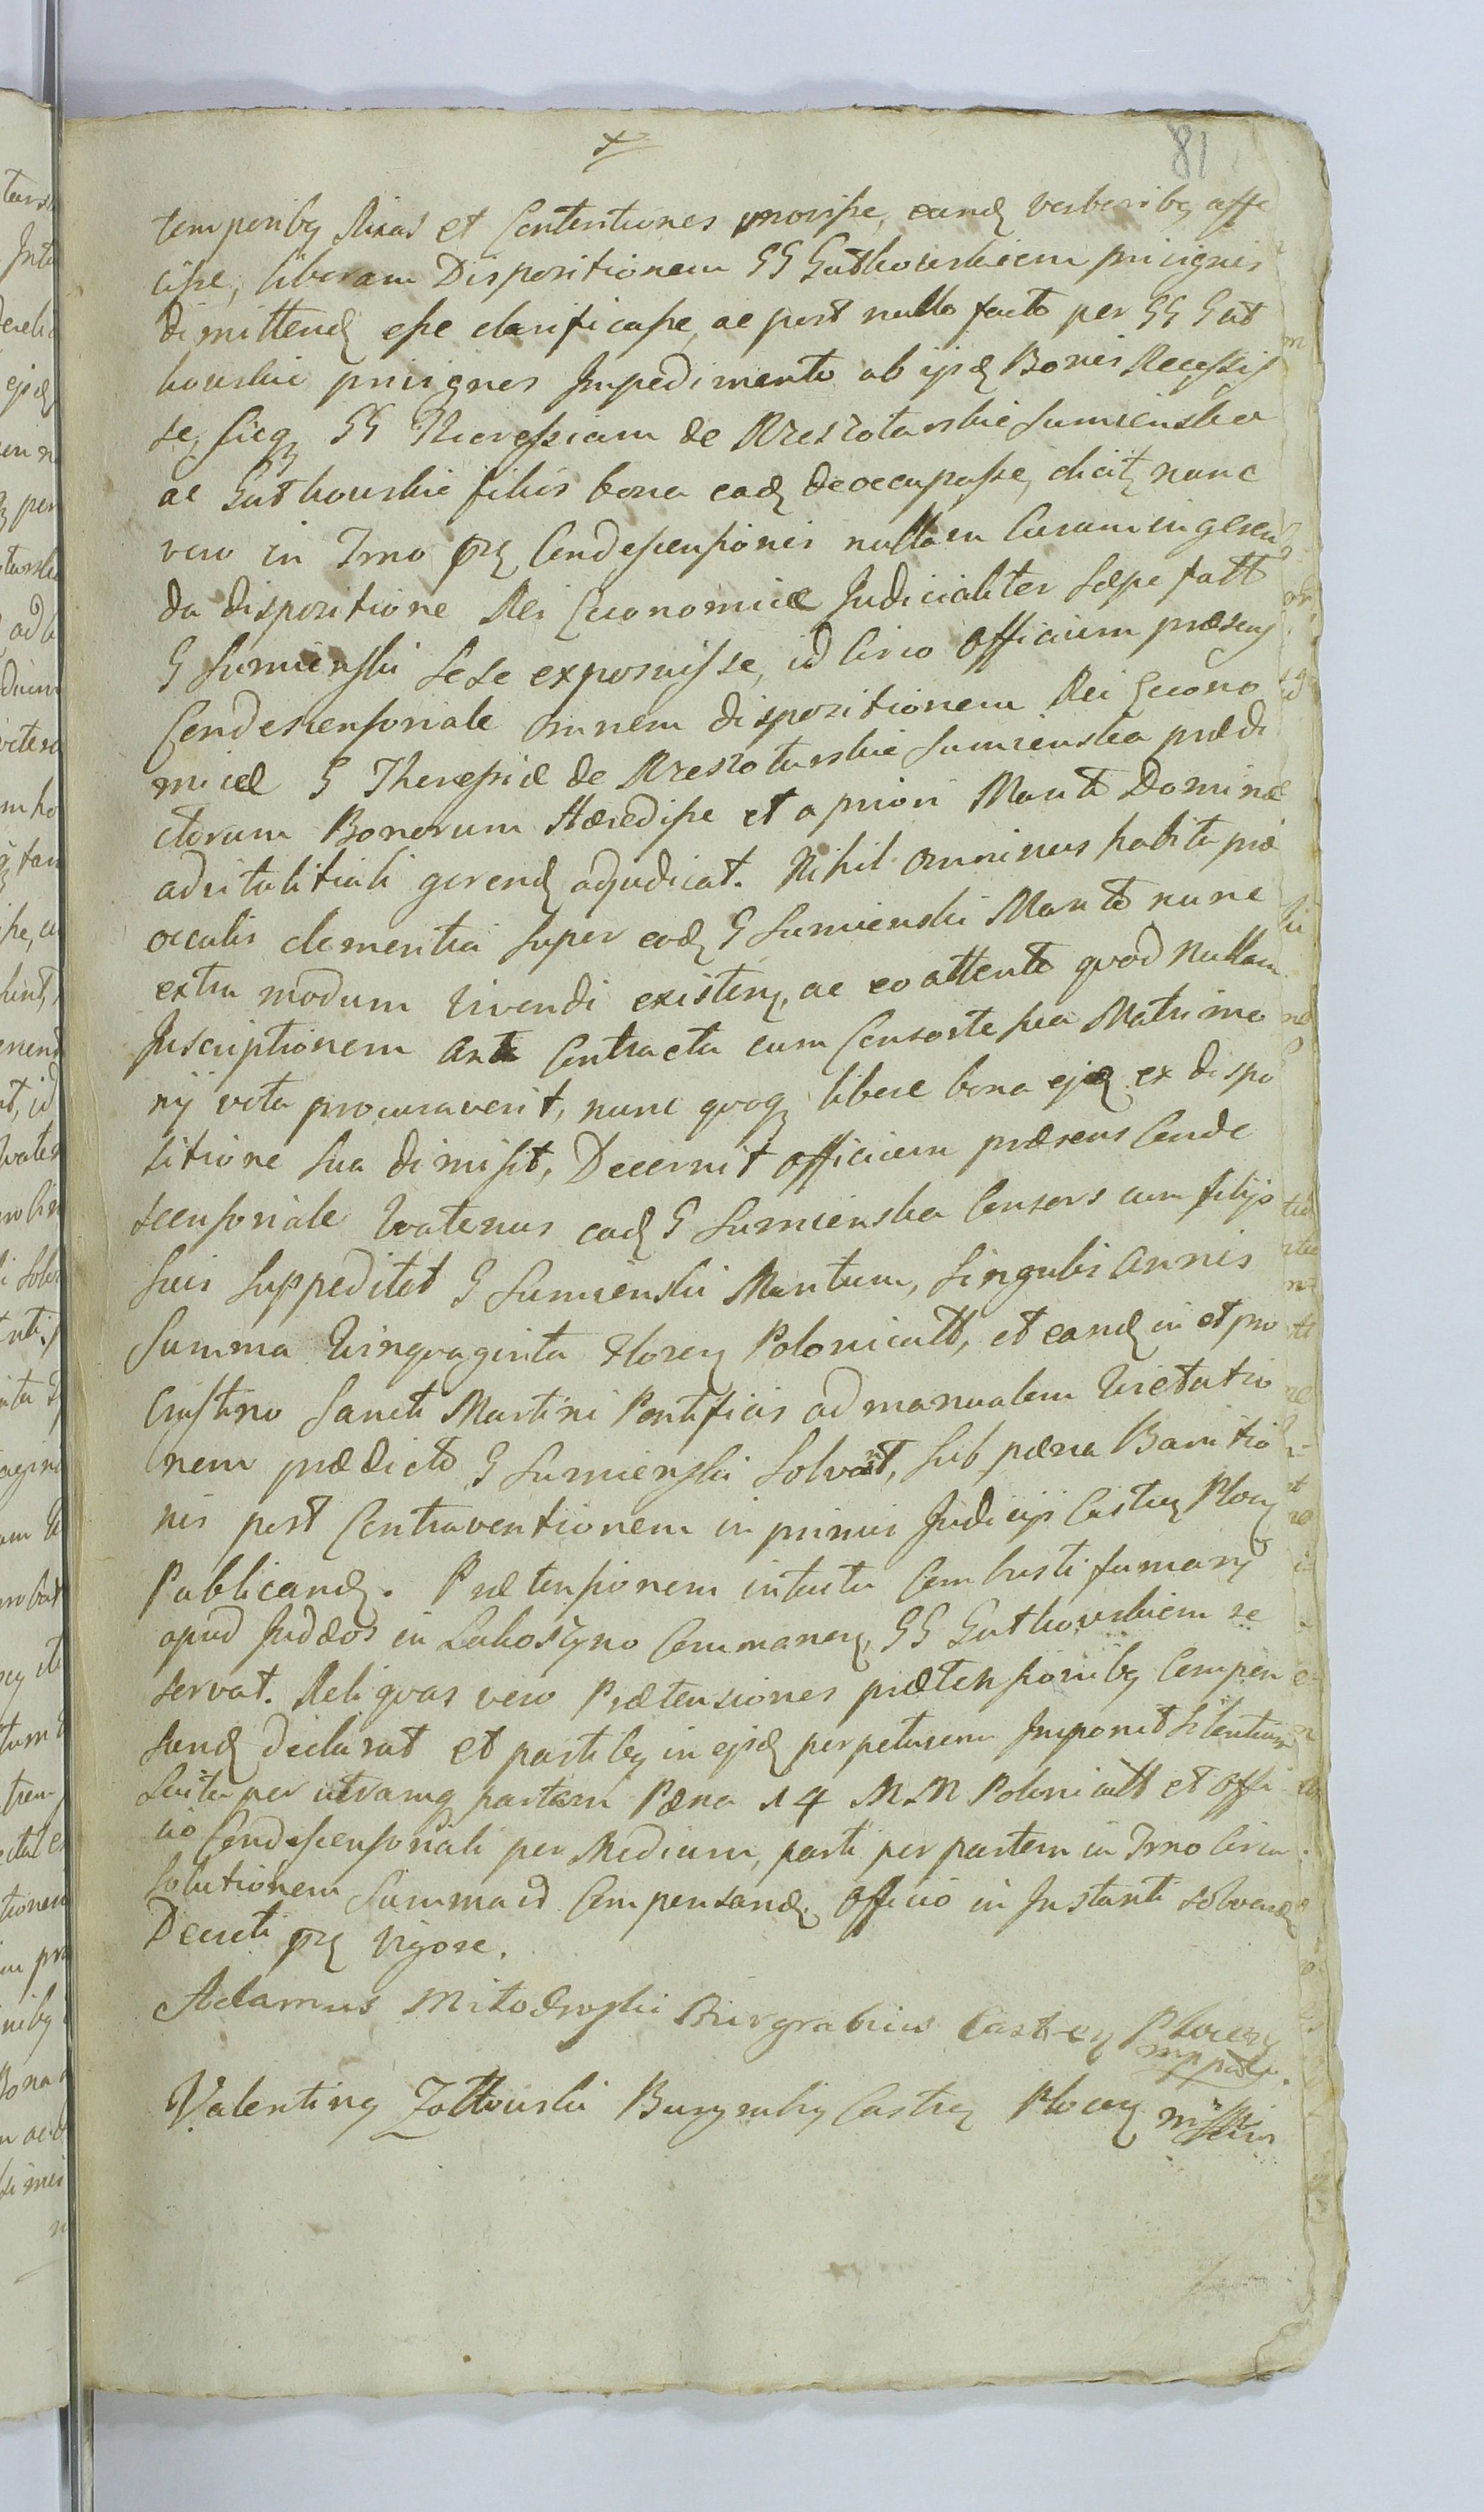 81
temporibq Rixas et Contentiones movisse, eandq verberibq affe
cisse, liberam Dispositionem GG Gutkowskiem privignis
dimittendq esse clarificasse, ac post nullo facto per GG Gut
kowskie privignos Impedimento ab ijsdq Bonis Recessis
se, sicqq GG Theressiam de Rzeszotarskie Sumienska
ac Gutkowskie filios bona eadq deoccupasse, dicitq nunc
vero in Trno prq Condescensionis nullam Curam in geren
da dispositione Rei Oeconomicæ Judicialiter Sæpe fatt
G Sumienski Sese exposuisse, id Circo Officium præsens
Condescensoriale Omnem dispositionem Rei Oecono
micæ G Theressiæ de Rzeszotarskie Sumienska prædi
ctorum Bonorum Hæredisse et a priori Marito Dominæ
advitalitiali gerendq adjudicat. Nihil Ominus habita præ
occulis clementia Super eodq G Sumienski Marito nunc
extra modum Vivendi existenq, ac eo attento quod Nullam
Inscriptionem ante Contracta cum Consorte sua Matrimo
nij vota procuraverit, nunc quoqq libere bona ejq ex dispo
sitione Sua dimisit, Decernit Officium præsens Conde
scensoriale Quatenus eadq G Sumienska Consors cum filijs
Suis Suppeditet G Sumienski Maritum, Singulis Annis
Summa Quinquaginta Florenq Polonicatt, et eandq in et pro
Crastino Sancti Martini Pontificis ad manualem Quietatio
nem prædicto G Sumienski Solvant, Sub pæna Banitio
nis post Contraventionem in primis Judicijs Castrenq Plocenq
Publicandq. Prætensionem intuitu Combusti fumarij
apud Judæos in Lekoszyno Commanenq, GG Gutkowskiem re
servat. Reliquas vero Prætensiones prætensionibq Compen
sandq declarat et partibq in ejsdq perpetuum Imponit Silentium
Luita per utramqq partem Pæna 14 MM Polonicatt et Offi
cio Condescensoriali per Medium, parti per partem in Trno Circa
Solutionem Summa id Compensandq Officio in Instanti Solvendq
Decreti prq Vigore.
Adamus Mitodroski Burgrabius Castrenq Plocenq
mpp
Valentinq Zottowski Burgrabiq Castrenq Plocenq mpp